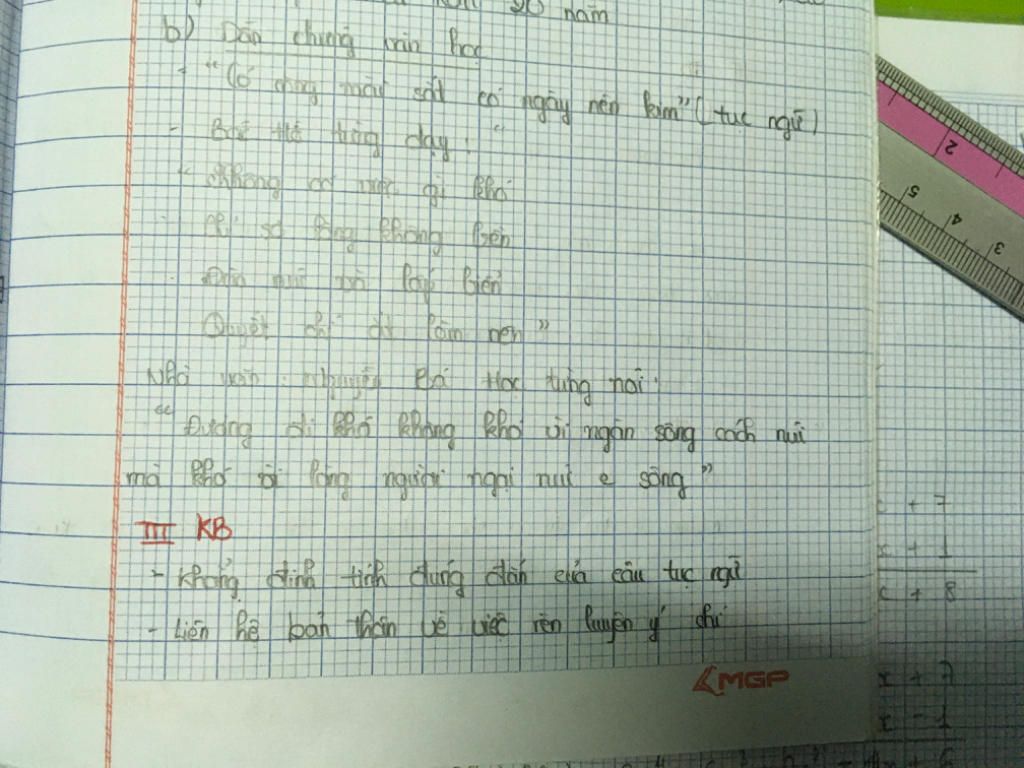 30 năm
b) Dẫn chứng văn học
- "Có công mài sắt có ngày nên kim" (tục ngữ)
- Bác Hồ từng dạy: "
" Không có việc gì khó
Chỉ sợ lòng không bền
Đào núi và lấp biển
Quyết chí ắt làm nên"
Nhà văn Nguyễn Bá Học từng nói:
"Đường đi khó không khó vì ngăn sông cách núi
mà khó vì lòng người ngại núi e sông"
III KB
- Khẳng định tính đúng đắn của câu tục ngữ
- Liên hệ bản thân về việc rèn luyện ý chí
MGP
2
5
4
3
+ 7
x + 1
x + 8
x + 7
x - 1